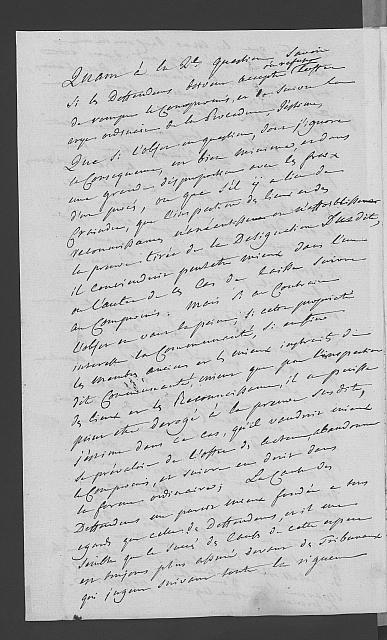 Quant à la 2de Question, Savoir
ou refuser
Si les Deffendeurs doivent accepter l'offre
de rompre le Compromis, et de suivre la
voye ordinaire de la Procedure, J'estime,
Que si l'objet en question, dont j'ignore
la Consequence, est bien minime, et dans
une grande disproportion avec les fraix
d'un procès, ou que s'il y a lieu de
Craindre, que l'inspection des lieux et des
reconnoissances n'anéantissent ou n'affoiblissent
la preuve tirée de la Designation Susdite,
il conviendroit peutetre mieux dans l'un
ou l'autre de ces Cas de laisser suivre
au Compromis. Mais si au Contraire
l'objet en vaut la peine, si cette propriété
interesse la Communauté, si enfin
les membres anciens et les mieux instruits de
dite Communauté, croient que par l'inspection
des lieux et les Reconnoissances, il ne puisse
point etre derogé à la preuve susdite,
j'estime dans ce cas, qu'il vaudroit mieux
se prévaloir de l'offre des acteurs, abandonner
le Compromis, et suivre en droit dans
la forme ordinaire; La Cause des
Deffendeurs me paroit mieux fondée à tous
egards que celle des Demandeurs, et il me
Semble que le succès des Causes de cette espece
est toujours plus assuré devant des Tribunaux
qui jugent suivant toute la rigueur